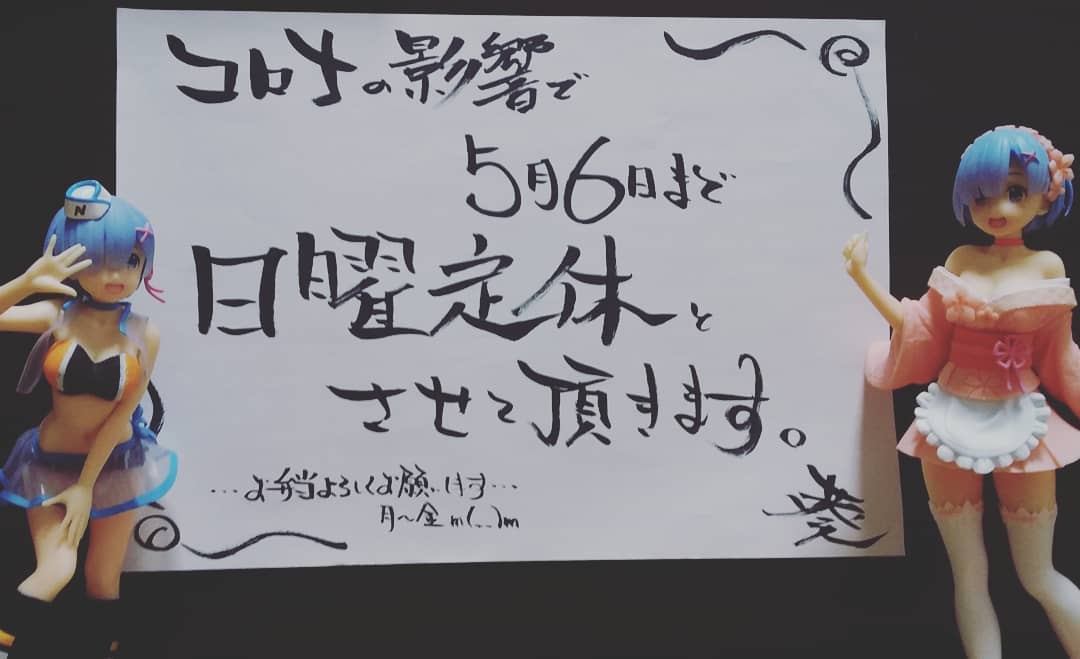 コロナの影響で
5月6日まで
日曜定休と
させて頂きます。
…お弁当よろしくお願いします…
月〜金 m(_ _)m
N